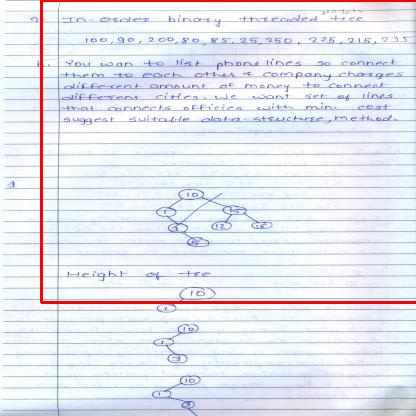 2. In-order binary threaded tree
100, 90, 200, 80, 85, 25, 250, 225, 215, 235
You wan to list phone lines so connect
them to each other & company charges
different amount of money to connect
different cities. We want set of lines
that connects officies with min. cost
suggest suitable data structure, method.
1.
10
1
15
3
12
16
5
Height of tree
10
1
10
1
3
10
1
3